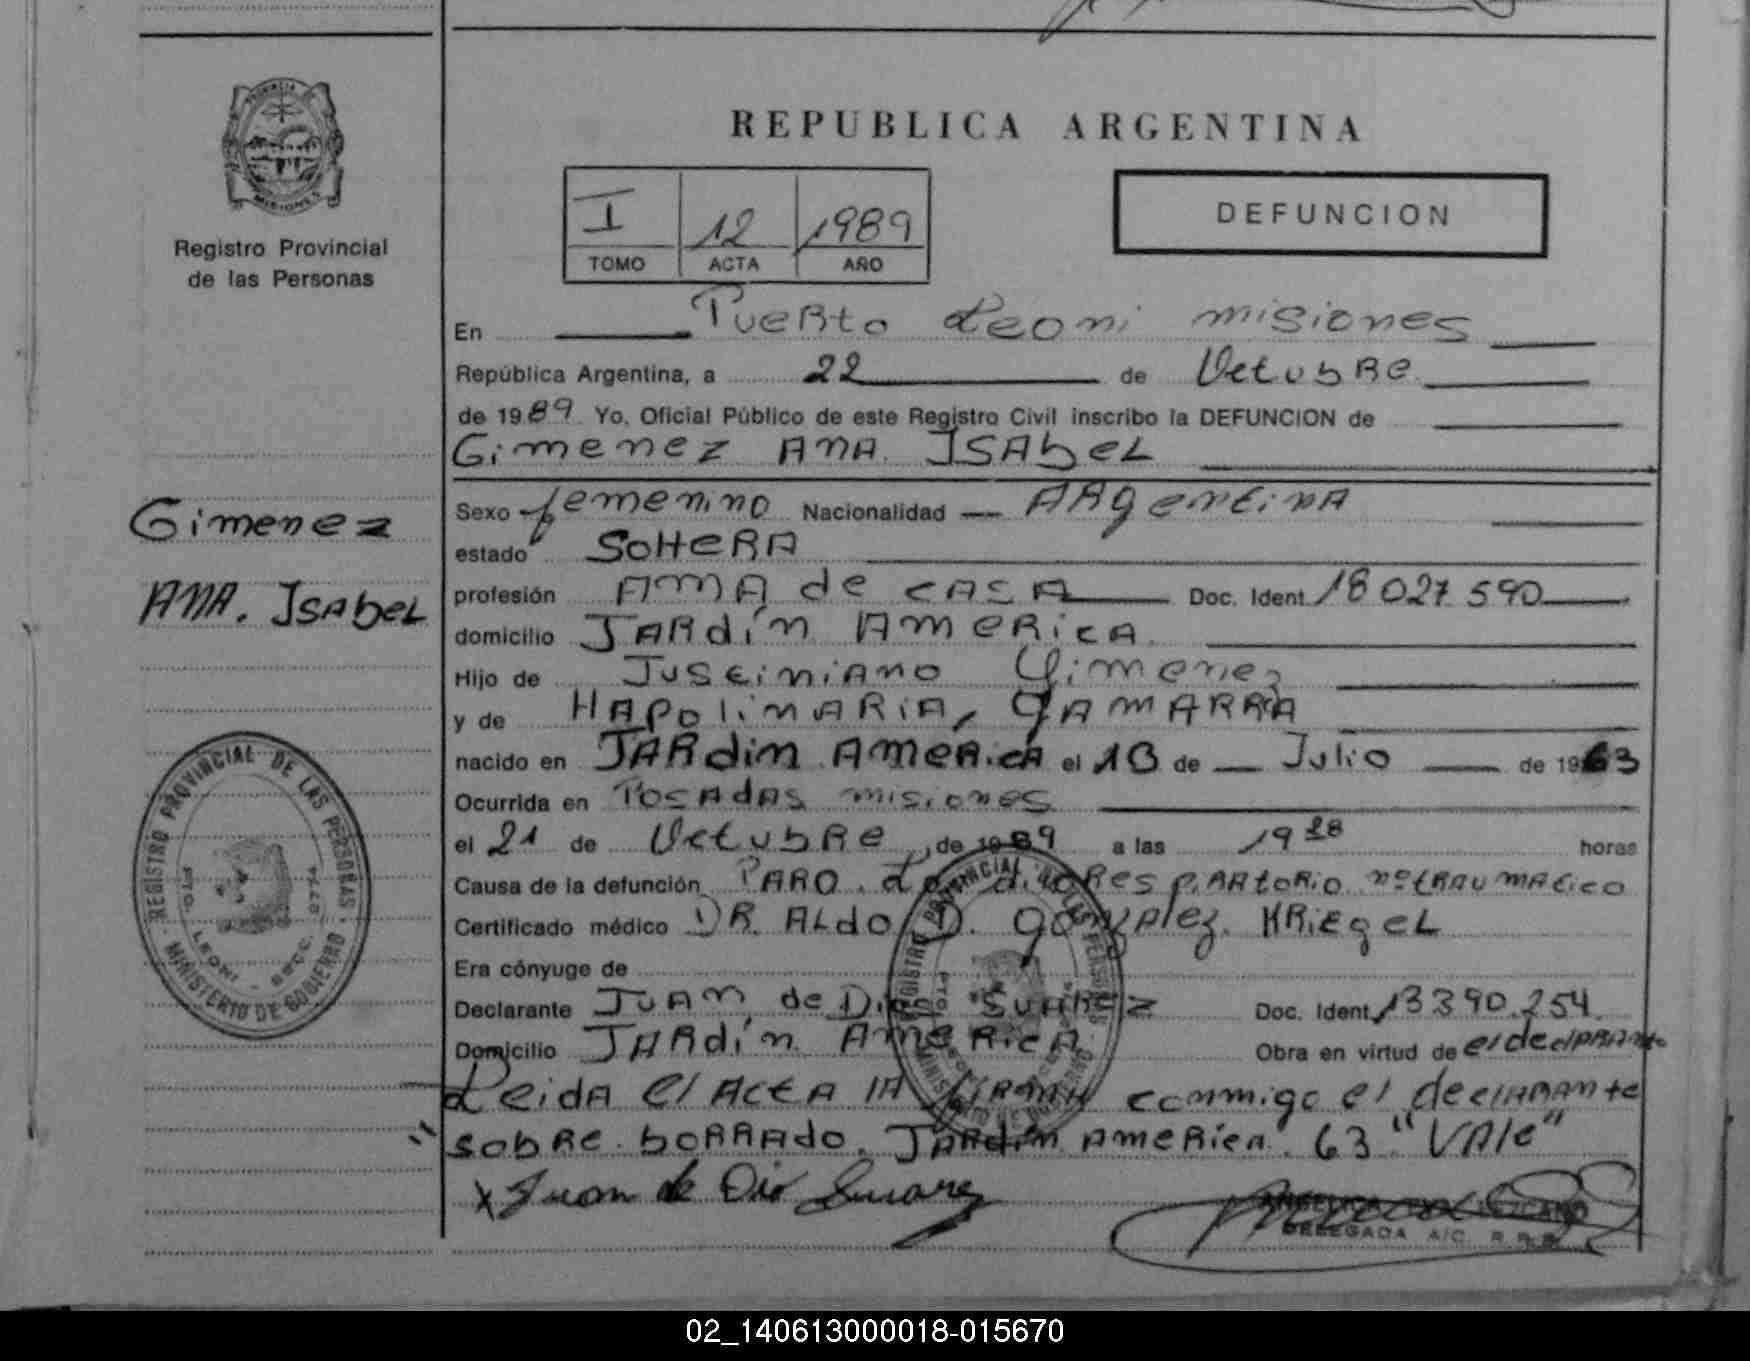 PROVINCIA DE
MISIONES
Registro Provincial
de las Personas
REPUBLICA ARGENTINA
I 12 1989
TOMO ACTA AÑO
DEFUNCION
En Puerto Leoni misiones
República Argentina, a 22 de Octubre
de 1989. Yo, Oficial Público de este Registro Civil inscribo la DEFUNCION de
Gimenez AnA. ISAbeL
Gimenez
AnA. ISAbeL
Sexo femenino Nacionalidad ARgentinA
estado SoLteRA
profesión AmA de CASA Doc. Ident. 18 027 590
domicilio JARdín AmeRicA.
Hijo de Justiniano Gimenez
y de HApolinARiA, GAmARRA
nacido en JARdin AmeRicA el 13 de Julio de 1963
Ocurrida en PosAdAs misiones
el 21 de OctubRe de 1989 a las 19 28 horas
Causa de la defunción PARO. diORespiRAtorio no tRAumAtico
Certificado médico DR. ALdo D. gonzALez. KRiegeL
Era cónyuge de
Declarante JuAn de Dios SuARez Doc. Ident. 13390.254.
Domicilio JARdín AmeRicA Obra en virtud de el declARAnte
Leida el ActA lA firmAn conmigo el declARAnte
sobRe boRRAdo. JARdin AmeRicA. 63 "VAle"
x Juan de Dio Suarez
DELEGADA A/C R.P.P.
REGISTRO PROVINCIAL DE LAS PERSONAS
MINISTERIO DE GOBIERNO
PTO. LEONI - SECC.
02_140613000018-015670